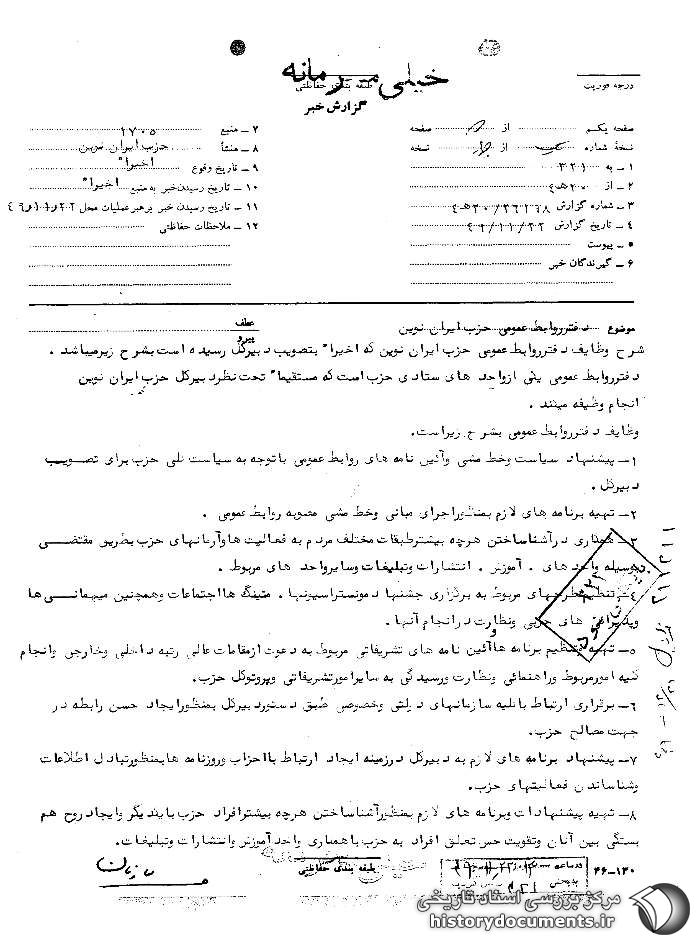 خیلی محرمانه
طبقه بندی حفاظتی
درجه فوریت
گزارش خبر
صفحه یکم از صفحه
نسخهٔ شماره از نسخه
۱ ــ به ۳۲۱
۲ ــ از ۲۰هـ۴
۳ ــ شماره گزارش ۲۰/۲۶۲۶۸هـ۴
۴ ــ تاریخ گزارش ۴۶/۱۱/۲۲
۵ ــ پیوست
۶ ــ گیرندگان خبر
۷ ــ منبع ۱۷۰۵
۸ ــ منشأ حزب ایران نوین
۹ ــ تاریخ وقوع اخیرا"
۱۰ ــ تاریخ رسیدن خبر به منبع اخیرا"
۱۱ ــ تاریخ رسیدن خبر برهبر عملیات محل
۱۲ ــ ملاحظات حفاظتی
موضوع دفتر روابط عمومی حزب ایران نوین
عطف
پیرو
شرح وظایف دفتر روابط عمومی حزب ایران نوین که اخیرا" بتصویب دبیرکل رسیده است بشرح زیر میباشد .
دفتر روابط عمومی یکی از واحد های ستادی حزب است که مستقیما" تحت نظر دبیرکل حزب ایران نوین
انجام وظیفه میکند .
وظایف دفتر روابط عمومی بشرح زیر است.
۱ــ پیشنهاد سیاست و خط مشی و آئین نامه های روابط عمومی با توجه به سیاست کلی حزب برای تصویب
دبیرکل .
۲ــ تهیه برنامه های لازم بمنظور اجرای مبانی و خط مشی مصوبه روابط عمومی .
۳ــ همکاری در آشنا ساختن هرچه بیشتر طبقات مختلف مردم به فعالیت ها و آرمانهای حزب بطریق مقتضی
بوسیله واحد های . آموزش . انتشارات و تبلیغات و سایر واحد های مربوط .
۴ــ تنظیم طرحهای مربوط به برگزاری جشنها دمونستراسیونها . متینگ ها اجتماعات و همچنین میهمانی ها
و پذیرائی های حزبی و نظارت در انجام آنها .
۵ــ تهیه و تنظیم برنامه ها و آئین نامه های تشریفاتی مربوط به دعوت از مقامات عالی رتبه داخلی و خارجی و انجام
کلیه امور مربوط و راهنمائی و نظارت و رسیدگی به سایر امور تشریفاتی و پروتوکل حزب.
۶ــ برقراری ارتباط با کلیه سازمانهای دولتی و خصوصی طبق دستور دبیرکل بمنظور ایجاد حسن رابطه در
جهت مصالح حزب.
۷ــ پیشنهاد برنامه های لازم به دبیرکل در زمینه ایجاد ارتباط با احزاب و روزنامه ها بمنظور تبادل اطلاعات
و شناساندن فعالیتهای حزب.
۸ــ تهیه پیشنهادات و برنامه های لازم بمنظور آشنا ساختن هرچه بیشتر افراد حزب با یکدیگر و ایجاد روح هم
بستگی بین آنان و تقویت حس تعلق افراد به حزب با همکاری واحد آموزش و انتشارات و تبلیغات.
طبقه بندی حفاظتی
۴۶-۱۲۰
مرکز بررسی اسناد تاریخی
historydocuments.ir